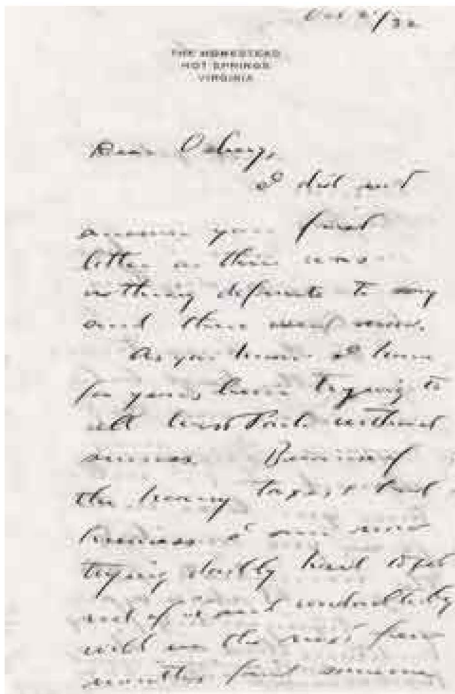 Oct 2/32
THE HOMESTEAD
HOT SPRINGS
VIRGINIA
Dear
I did not
answer your first
letter as there was
nothing definite to say
and there went now.
As you know I have
for years been trying to
sell without
success. Because of
the heavy taxes & bad
business I am now
trying doubly hard to get
rid of it and undoubtedly
will in the next few
months find someone